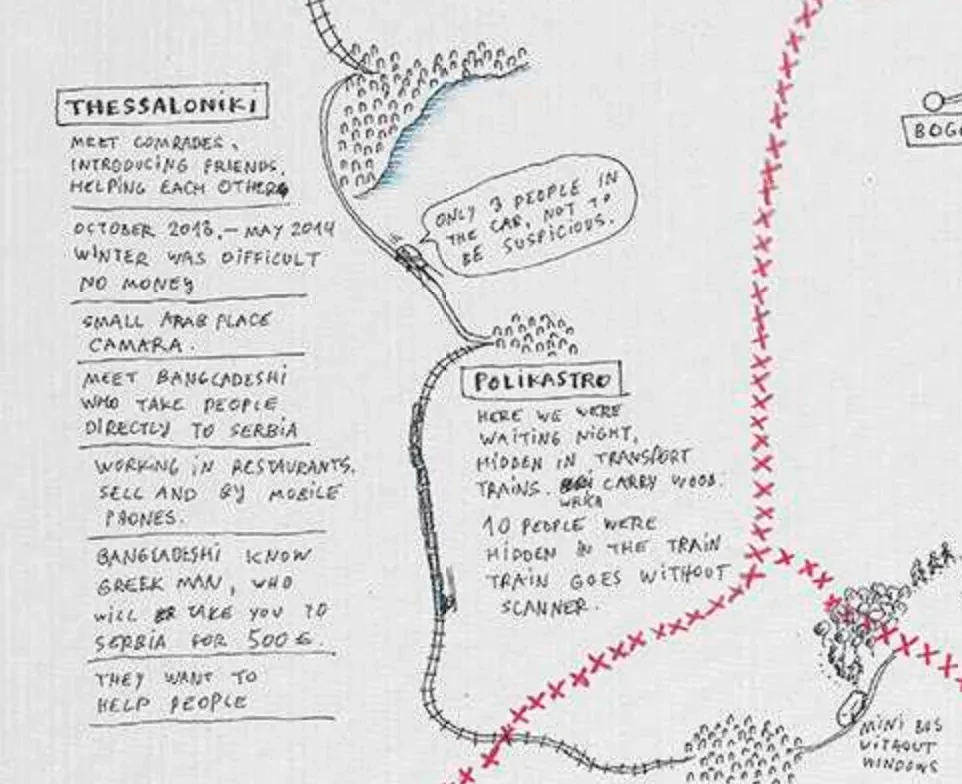 THESSALONIKI
MEET COMRADES,
INTRODUCING FRIENDS.
HELPING EACH OTHER
OCTOBER 2013.–MAY 2014
WINTER WAS DIFFICULT
NO MONEY
SMALL ARAB PLACE
CAMARA.
MEET BANGLADESHI
WHO TAKE PEOPLE
DIRECTLY TO SERBIA
WORKING IN RESTAURANTS.
SELL AND BY MOBILE
PHONES.
BANGLADESHI KNOW
GREEK MAN, WHO
WILL TAKE YOU TO
SERBIA FOR 500 €.
THEY WANT TO
HELP PEOPLE
ONLY 3 PEOPLE IN
THE CAR, NOT TO
BE SUSPICIOUS.
POLIKASTRO
HERE WE WERE
WAITING NIGHT,
HIDDEN IN TRANSPORT
TRAINS. CARRY WOOD.
WHICH
10 PEOPLE WERE
HIDDEN IN THE TRAIN
TRAIN GOES WITHOUT
SCANNER.
BOGO
MINI BUS
WITHOUT
WINDOWS